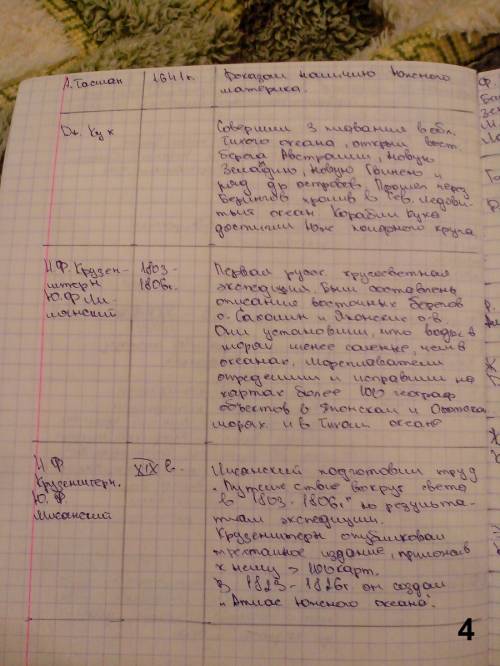 А. Тасман 1641г. Доказал наличию Южного
материка.
Дж. Кук Совершил 3 плавания в обл.
Тихого океана, открыл вост.
берега Австралии, Новую
Зеландию, Новую Гвинею и
ряд др островов. Прошел через
Берингов пролив в Сев. Ледови-
тый океан Корабли Кука
достигли Юж полярного круга
И.Ф. Крузен- 1803- Первая русск. кругосветная
штерн 1806г. экспедиция. Были составлены
Ю.Ф Ли- описание восточных берегов
сянский о. Сахалин и Японские о-в
Они установили, что воды в
морях менее соленые, чем в
океанах, мореплаватели
определили и исправили на
картах более 100 географ
объектов в Японском и Охотском
морях и в Тихом океане
И Ф XIX в. Лисянский подготовил труд
Крузенштерн. "Путешествие вокруг света
Ю. Ф в 1803-1806г" по результа-
Лисянский там экспедиции.
Крузенштерн опубликовал
трехтомное издание, приложив
к нему > 100 карт.
В 1823-1826г он создал
"Атлас Южного океана".
4